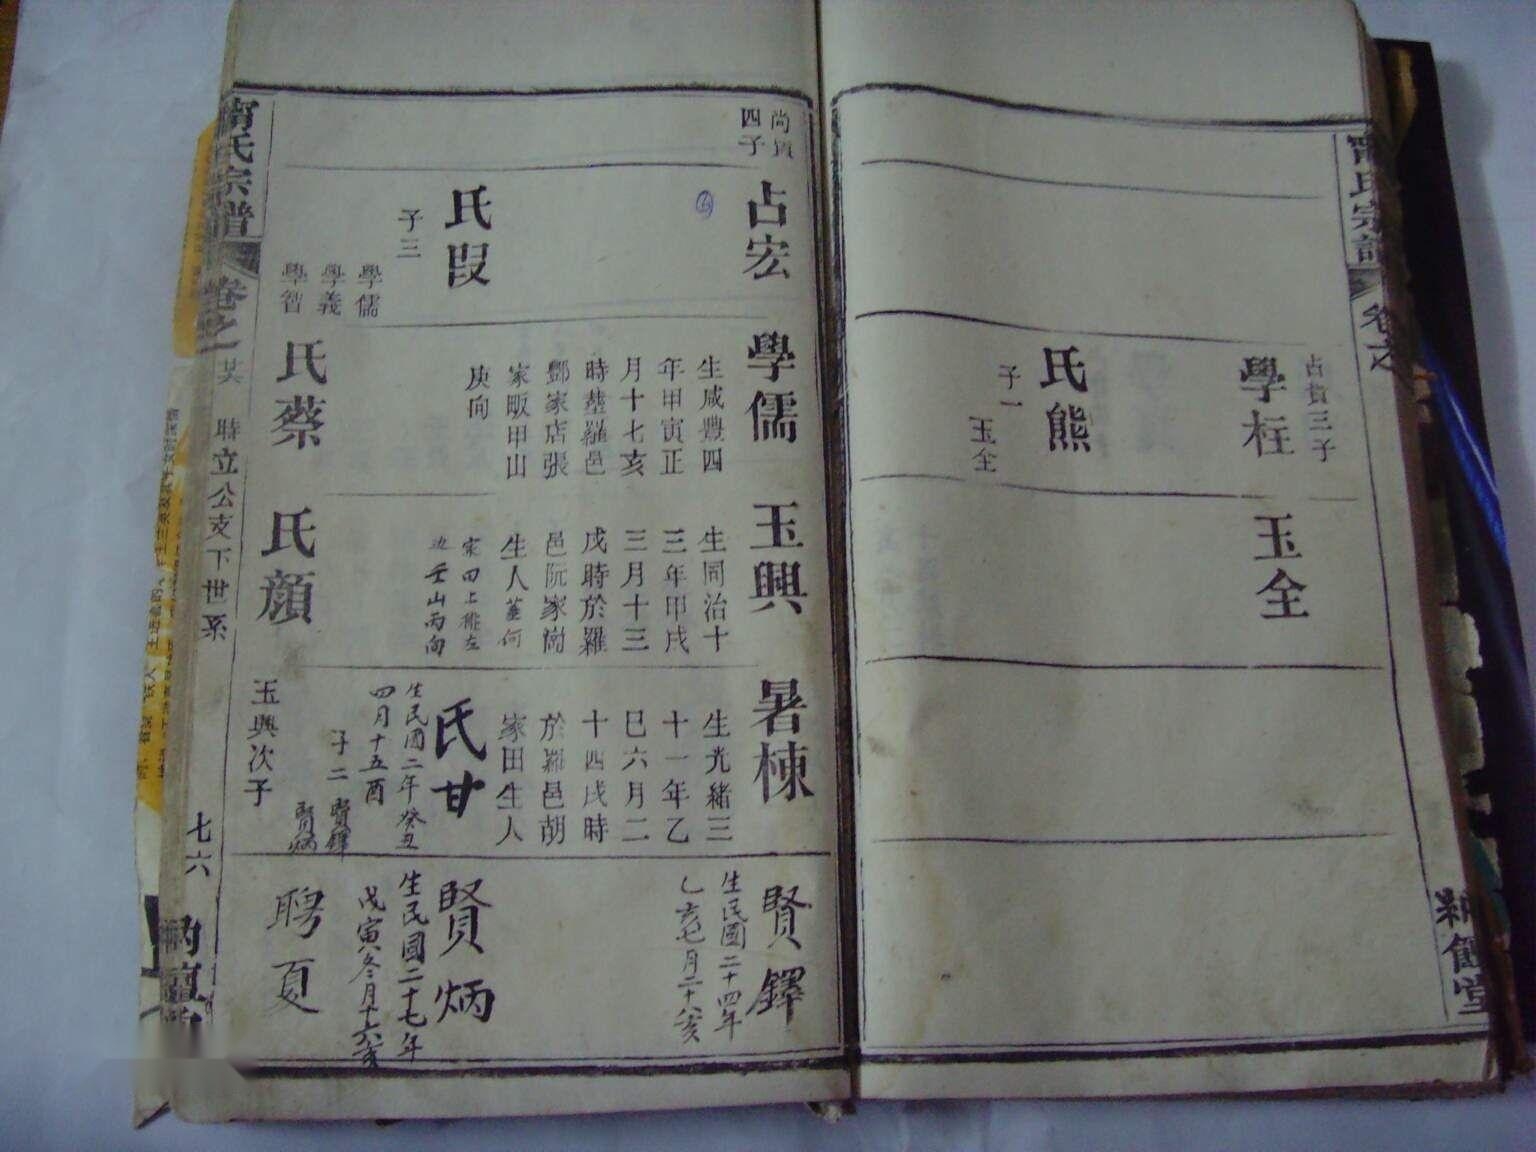 氏宗譜
卷之
占貴三子
學柱
氏熊
子一
玉全
玉全
堂
尚質
四子
占宏
氏段
子三
學儒
學義
學智
學儒
生咸豐四
年甲寅正
月十七亥
時塟羅邑
酆家店張
家畈甲山
庚向
氏蔡
玉興
生同治十
三年甲戌
三月十三
戌時於羅
邑阮家崗
生人塟何
家田上排左
边壬山丙向
氏顏
暑棟
生光緒三
十一年乙
巳六月二
十四戌時
於羅邑胡
家田生人
氏甘
生民國二年癸丑
四月十五酉
子二
賢鐸
賢炳
玉興次子
賢鐸
生民國二十四年
乙亥七月二十八亥
賢炳
生民國二十七年
戊寅冬月十六亥
聘夏
氏宗譜
卷之一
時立公支下世系
七六